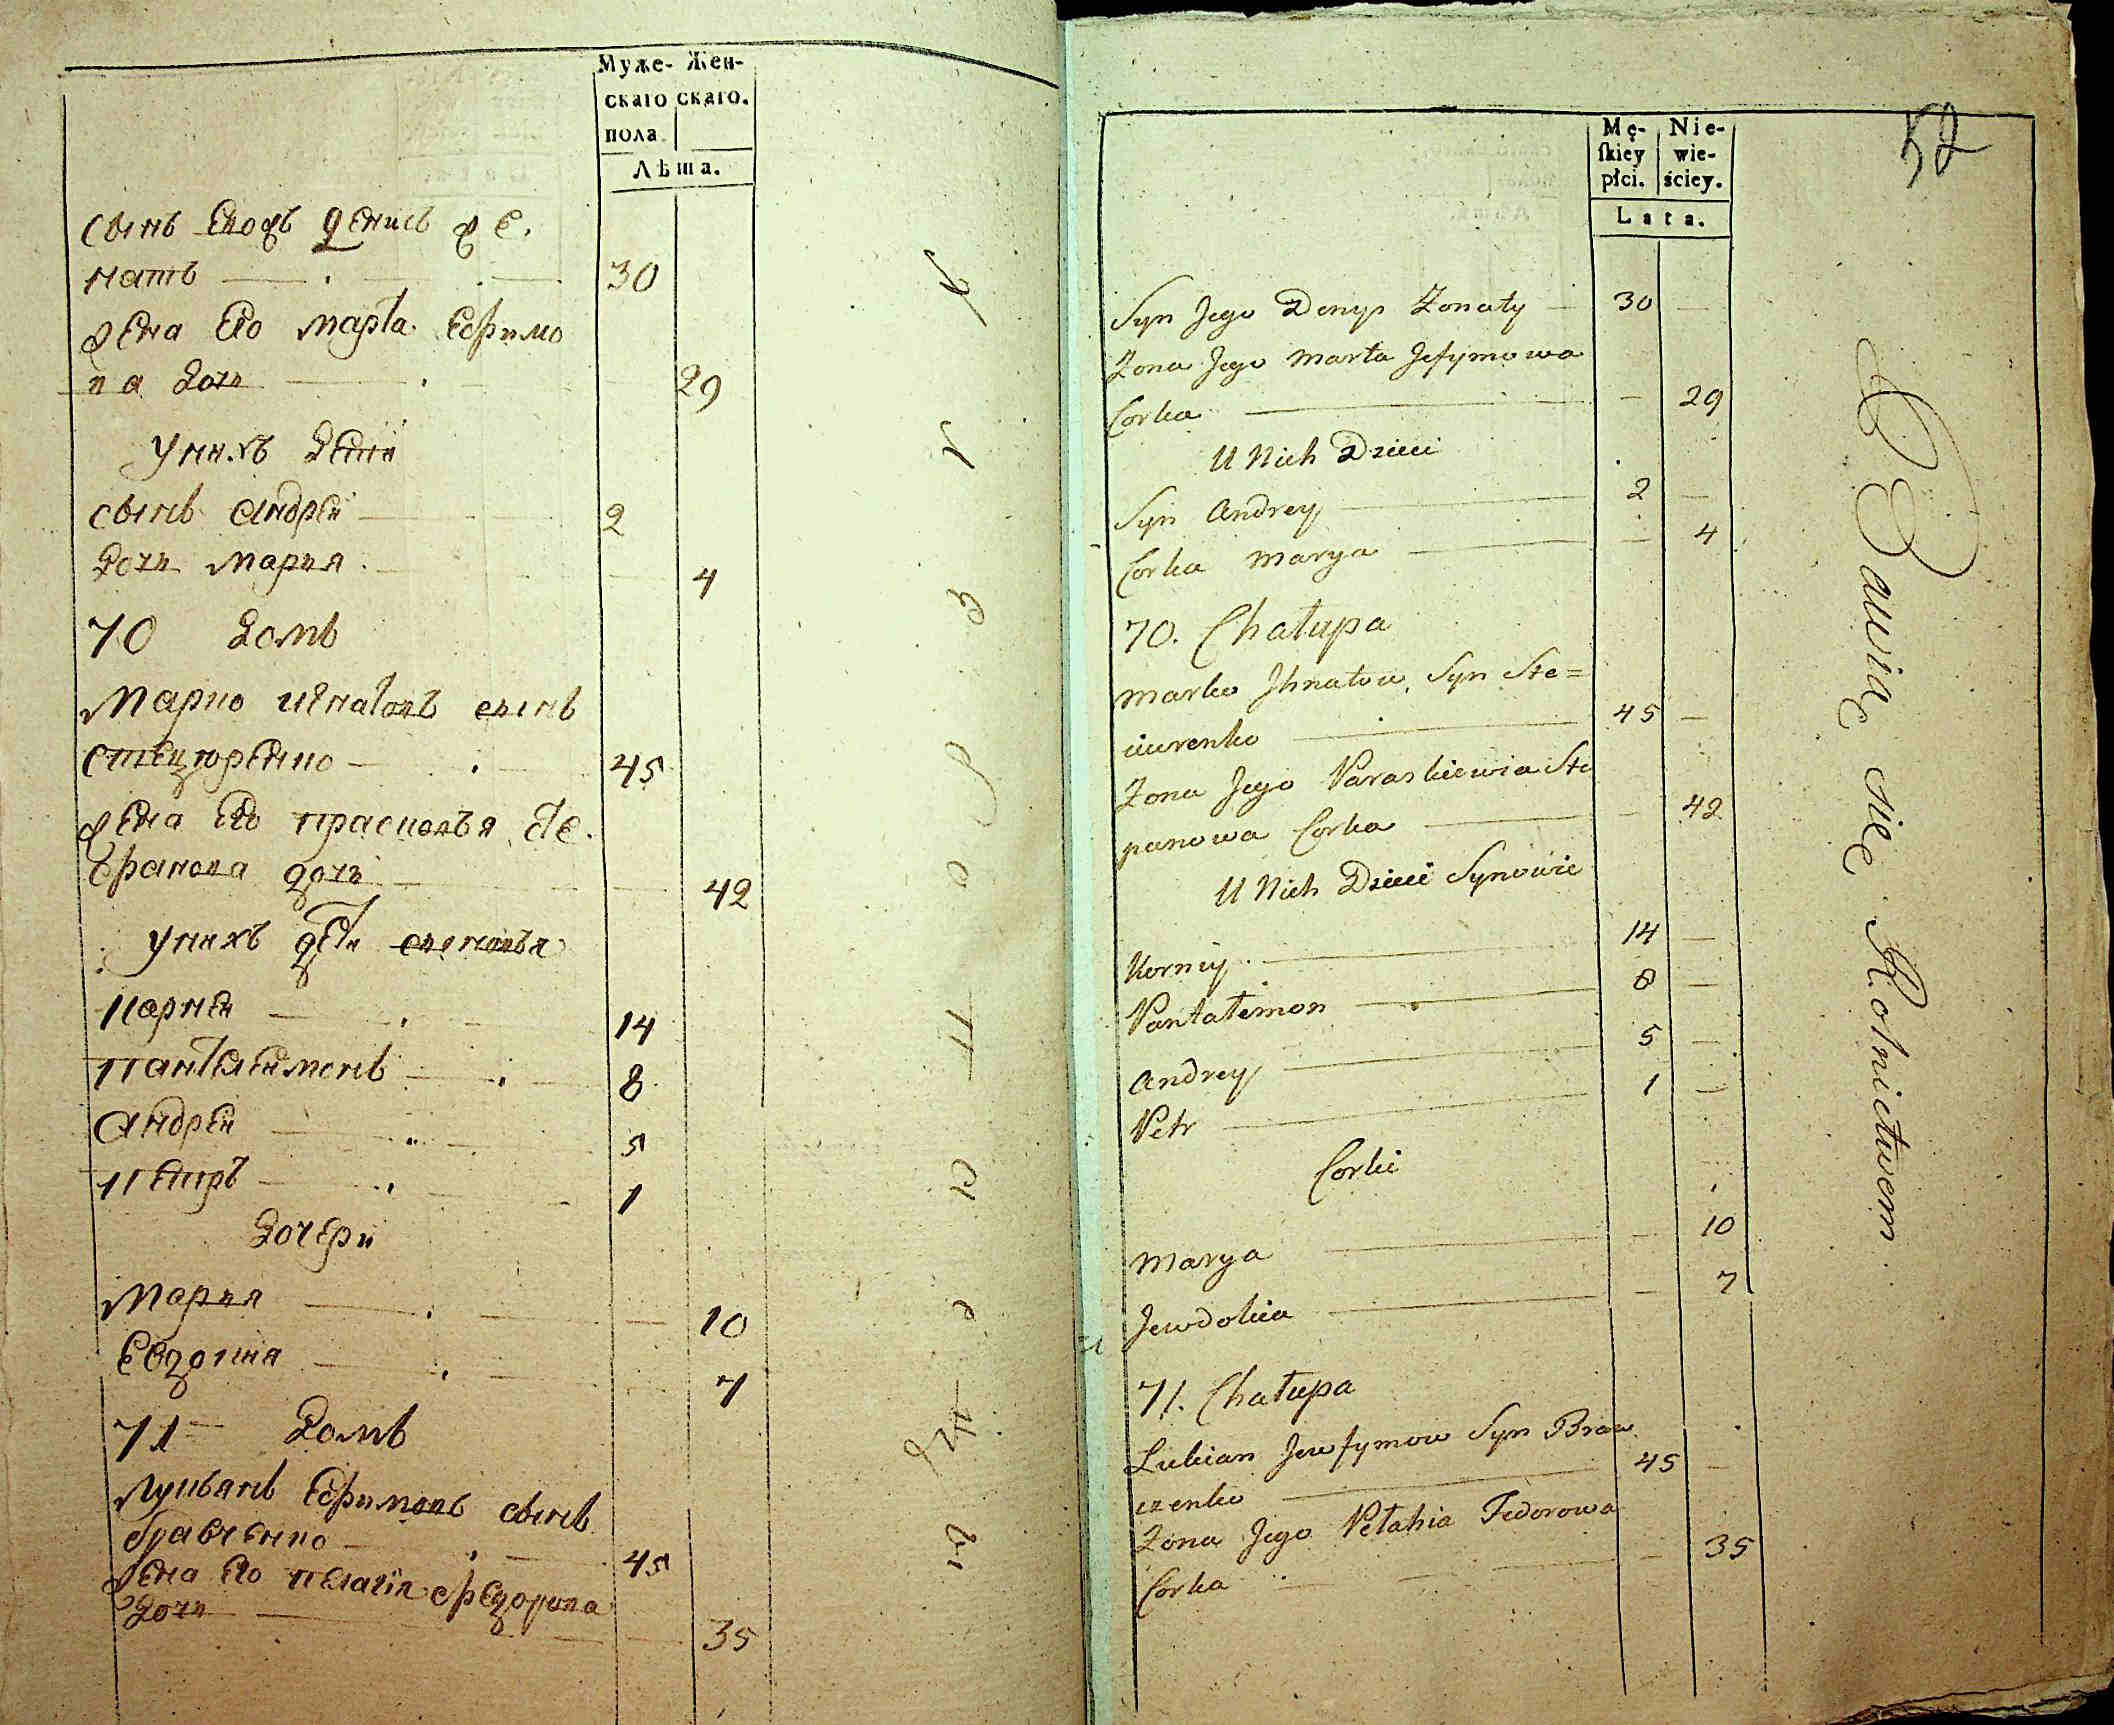 Муже- Жен-
скаго скаго.
пола
Лѣта.
сынъ Еѵо Денисъ же.
натъ 30
жена Его Марта Ефимо
ва дочь 29
У нихъ дети
сынъ Андрей 2
дочь Мария 4
70 Домъ
Марко Игнатовъ сынъ
Стецюренко 45
жена Его Прасковья Сте.
Фанова дочь 42
У нихъ дети сыновья
Карней 14
Пантелеймонъ 8
Андрей 5
Петръ 1
Дочери
Мария 10
Евдокия 7
71 Домъ
Лукьянъ Ефимовъ сынъ
Бравченко 45
жена Его Пелагія Федорова
дочь 35
52
Mę- Nie-
skiey wie-
płci. ściey.
Lata.
Syn Jego Denys Zonaty 30
Zona Jego Marta Jefymowa
Corka 29
U Nich Dzieci
Syn Andrey 2
Corka Marya 4
70. Chałupa
Marko Jhnatow Syn Ste=
ciurenko 45
Zona Jego Paraskiewia Ste
panowa Corka 42
U Nich Dzieci Synowie
Korniy 14
Pantałemon 8
Andrey 5
Petr 1
Corki
Marya 10
Jewdokia 7
71. Chałupa
Lukian Jewfymow Syn Braw
czenko 45
Zona Jego Pełahia Fedorowa
Corka 35
Bawią się Rolnictwem